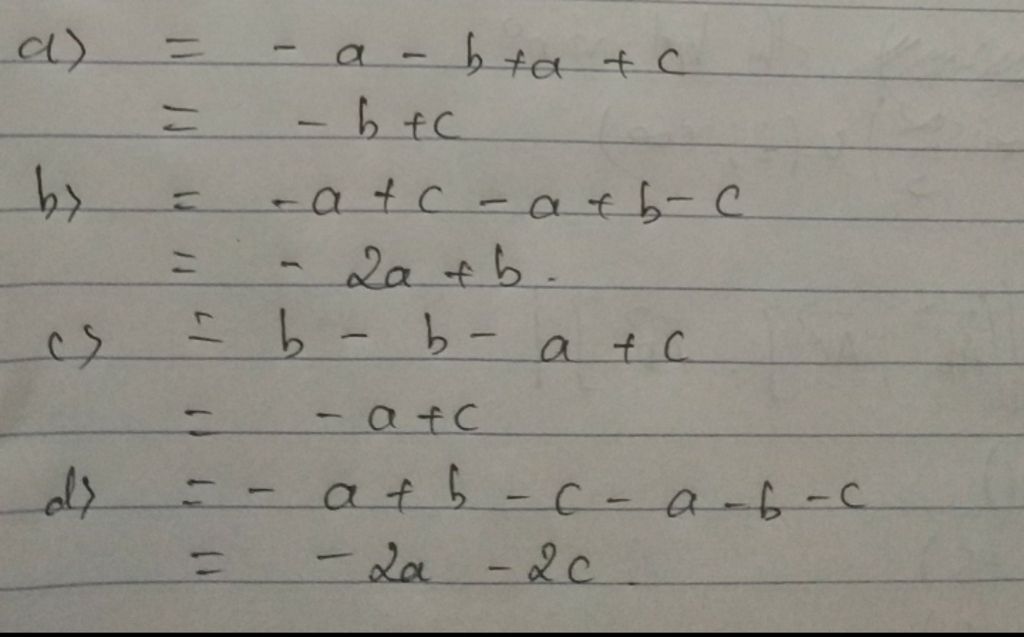 a) = - a - b + a + c
= - b + c
b) = - a + c - a + b - c
= - 2a + b.
c) = b - b - a + c
= - a + c
d) = - a + b - c - a - b - c
= - 2a - 2c.